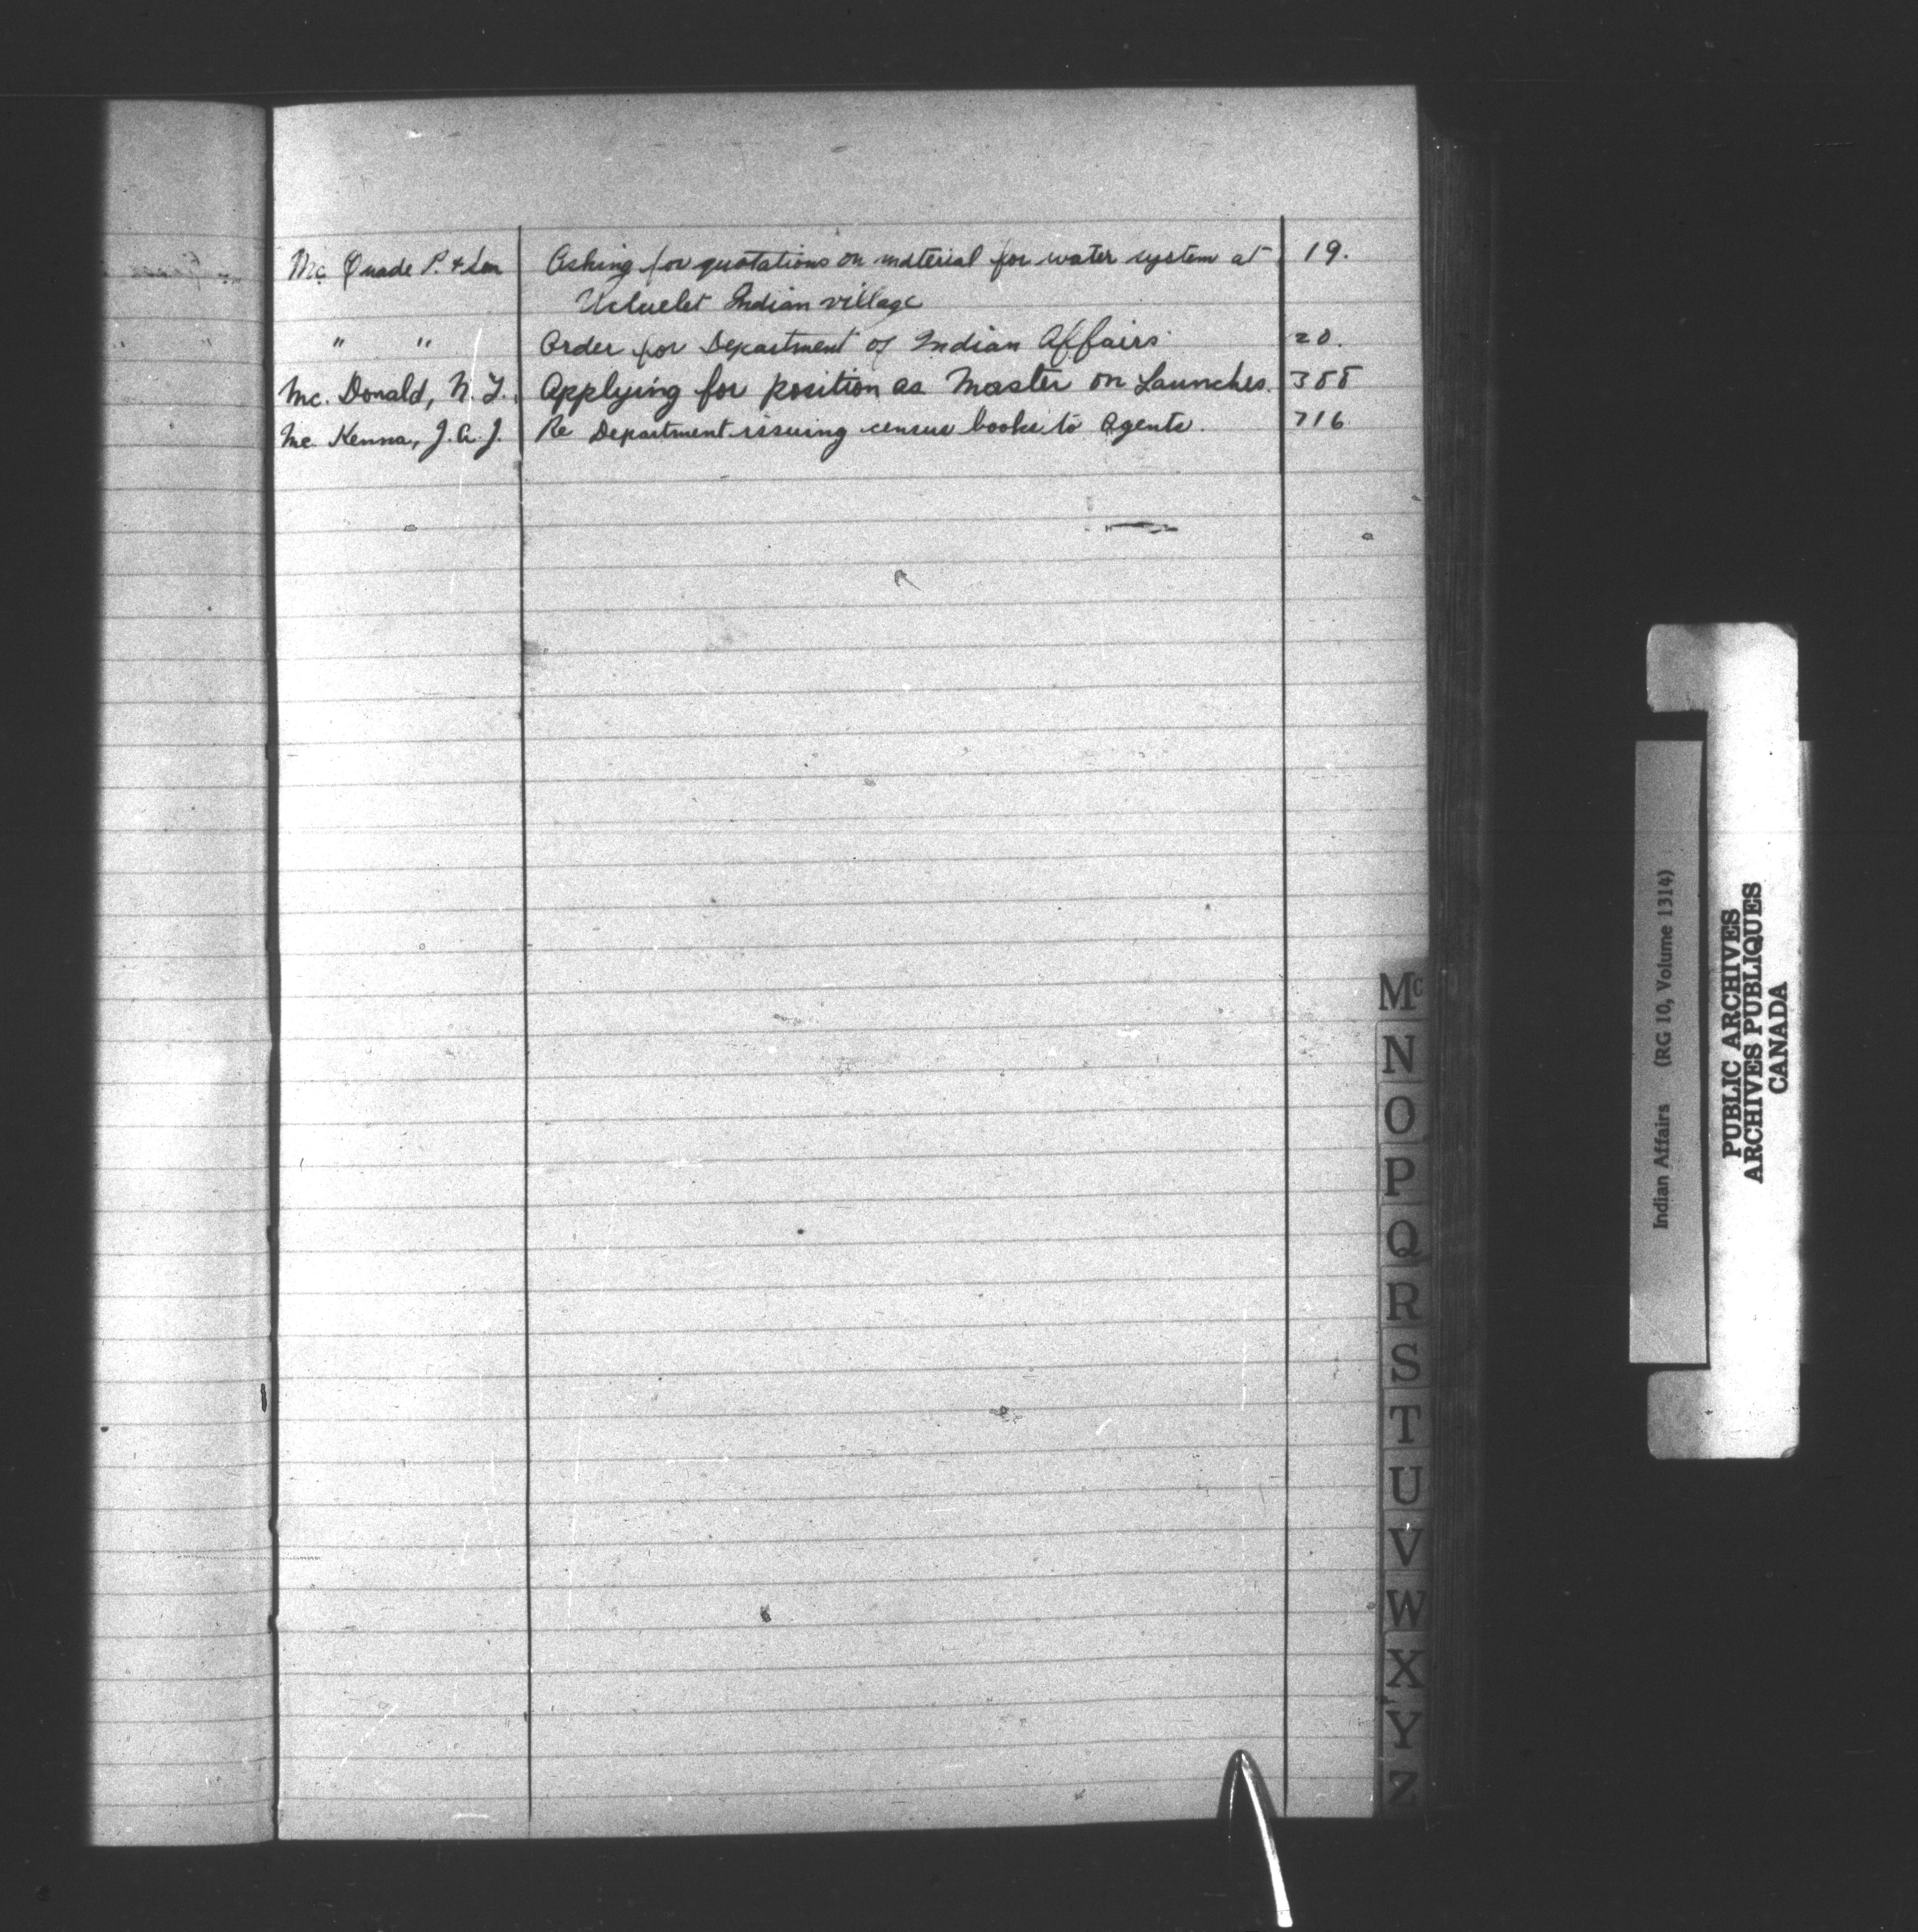 Mc Quade P. & Son Asking for quotations on material for water system at 19.
Ucluelet Indian village
" " Order for Department of Indian Affairs 20.
Mc. Donald, N. Applying for position as Master on Launches. 388
Mc. Kenna, J.A.J. Re Department issuing census books to Agents. 716
Mc
N
O
P
Q
R
S
T
U
V
W
X
Y
Z
Indian Affairs (RG 10, Volume 1314)
PUBLIC ARCHIVES
ARCHIVES PUBLIQUES
CANADA